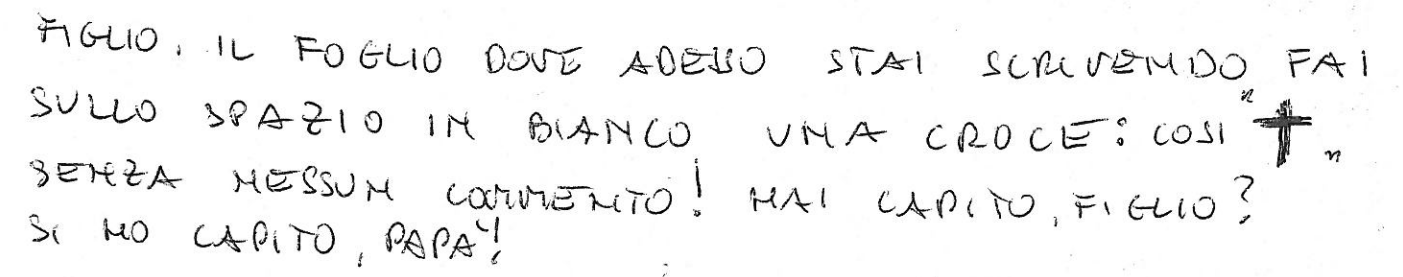 FIGLIO, IL FOGLIO DOVE ADESSO STAI SCRIVENDO FAI
SULLO SPAZIO IN BIANCO UNA CROCE: COSI "✝"
SENZA NESSUN COMMENTO! HAI CAPITO, FIGLIO?
SI HO CAPITO, PAPA'!